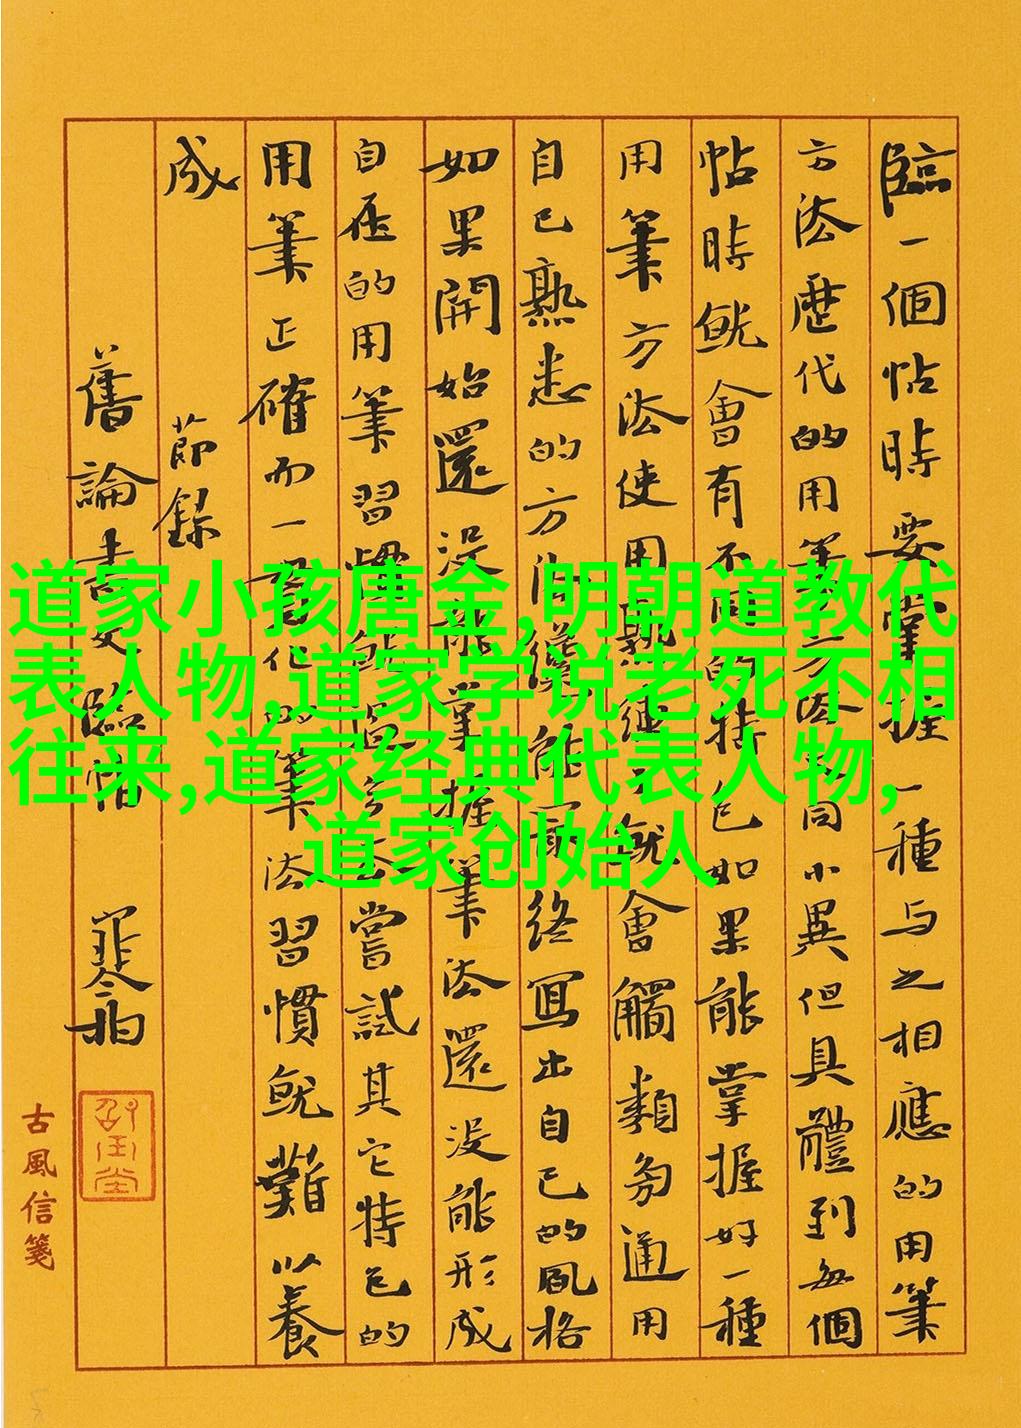 臨一個帖時要掌握一種与之相應的用筆
方法歷代的用筆方法大同小異但具體到每個
帖時就會有不同的特色如果能掌握好一種
用筆方法使用熟練了就會觸類旁通用
自己熟悉的方法
終寫出自己的風格
如果開始還没能掌握筆法還没能形成
自在的用筆習慣
嘗試其它特色的
用筆正確而一
筆法習慣就難以養
成
節錄
舊論書文臨帖
古風信箋
道家小孩唐金,明朝道教代
表人物,道家学说老死不相
往来,道家经典代表人物,
道家创始人